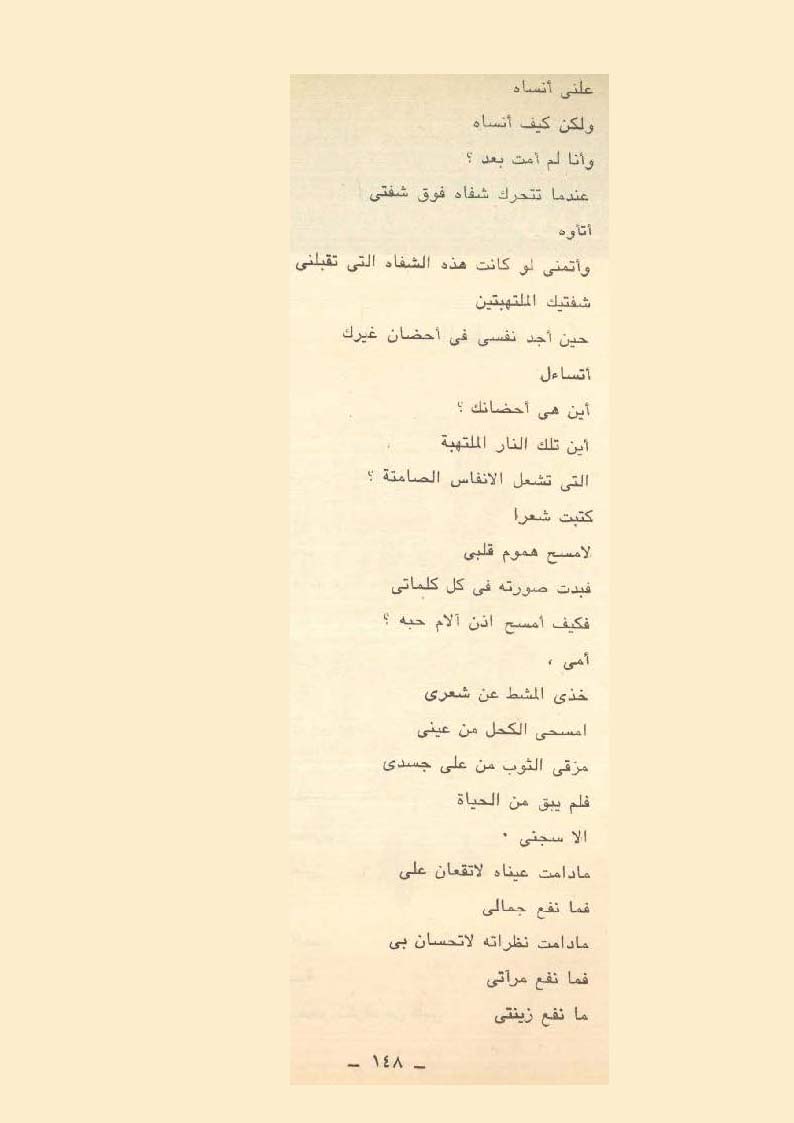 علنى أنساه
ولكن كيف أنساه
وأنا لم أمت بعد ؟
عندما تتحرك شفاه فوق شفتى
أتأوه
وأتمنى لو كانت هذه الشفاه التى تقبلنى
شفتيك الملتهبتين
حين أجد نفسى فى أحضان غيرك
أتساءل
أين هى أحضانك ؟
أين تلك النار الملتهبة
التى تشعل الانفاس الصامتة ؟
كتبت شعرا
لامسح هموم قلبى
فبدت صورته فى كل كلماتى
فكيف أمسح اذن آلام حبه ؟
أمى ،
خذى المشط عن شعرى
امسحى الكحل من عينى
مزقى الثوب من على جسدى
فلم يبق من الحياة
الا سجنى ٠
مادامت عيناه لاتقعان على
فما نفع جمالى
مادامت نظراته لاتحسان بى
فما نفع مرآتى
ما نفع زينتى
– ١٤٨ –